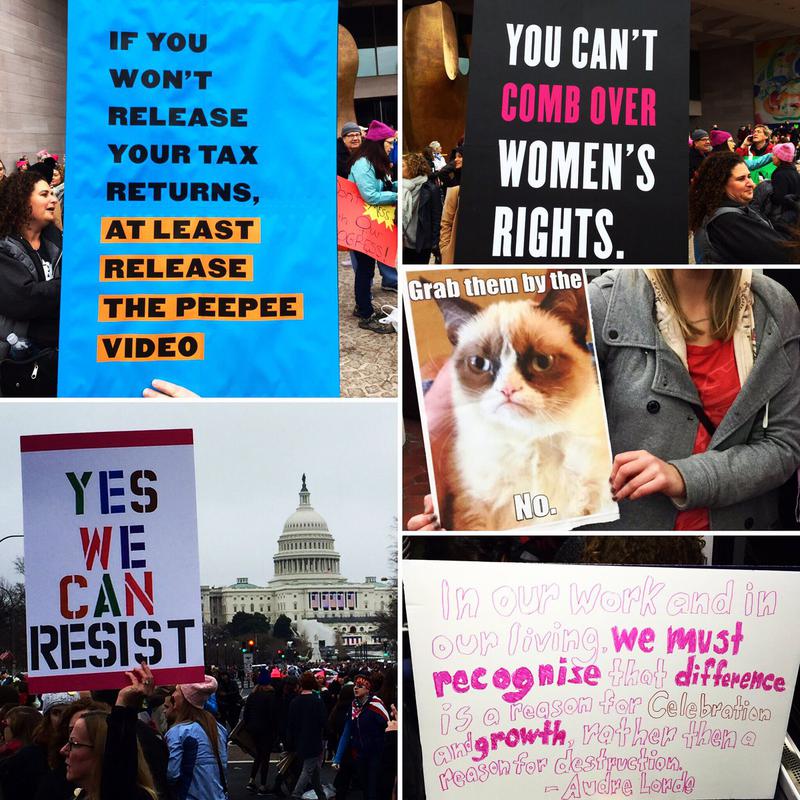 IF YOU
WON'T
RELEASE
YOUR TAX
RETURNS,
AT LEAST
RELEASE
THE PEPEE
VIDEO
YOU CAN'T
COMB OVER
WOMEN'S
RIGHTS.
Grab them by the
No.
YES
WE
CAN
RESIST
In our work and in
our living, we must
recognise that difference
is a reason for Celebration
and growth, rather then a
reason for destruction.
- Audre Lorde